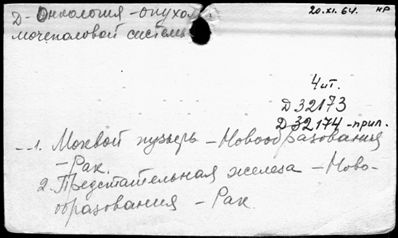 Д - Онкология - опухоли
мочеполовой системы
20.XI.64. НР
Чит.
Д32173
Д32174 - прил.
1. Мочевой пузырь - Новообразования
- Рак.
2. Предстательная железа - Ново-
образования - Рак.